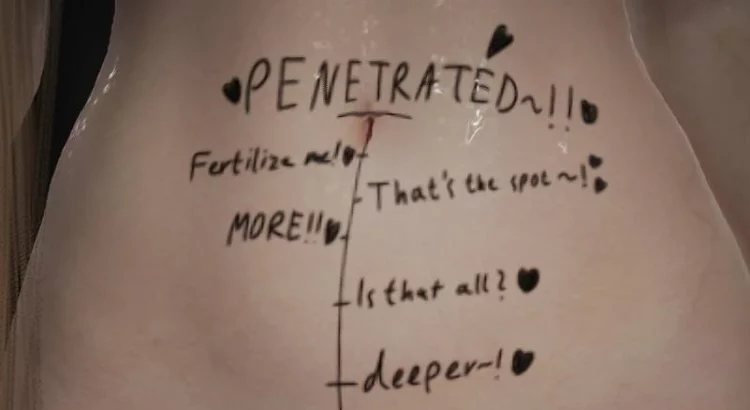 ♥PENETRATED~!!♥
Fertilize me!♥
That's the spot~!♥
MORE!!♥
Is that all?♥
deeper~!♥